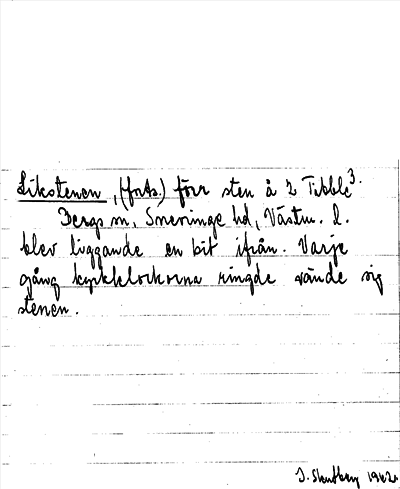 Likstenen, (forts.) förr sten å 2 Tibble³.
Bergs sn, Snevringe hd, Västm. l.
blev liggande en bit ifrån. Varje
gång kyrkklockorna ringde vände sig
stenen.
1942